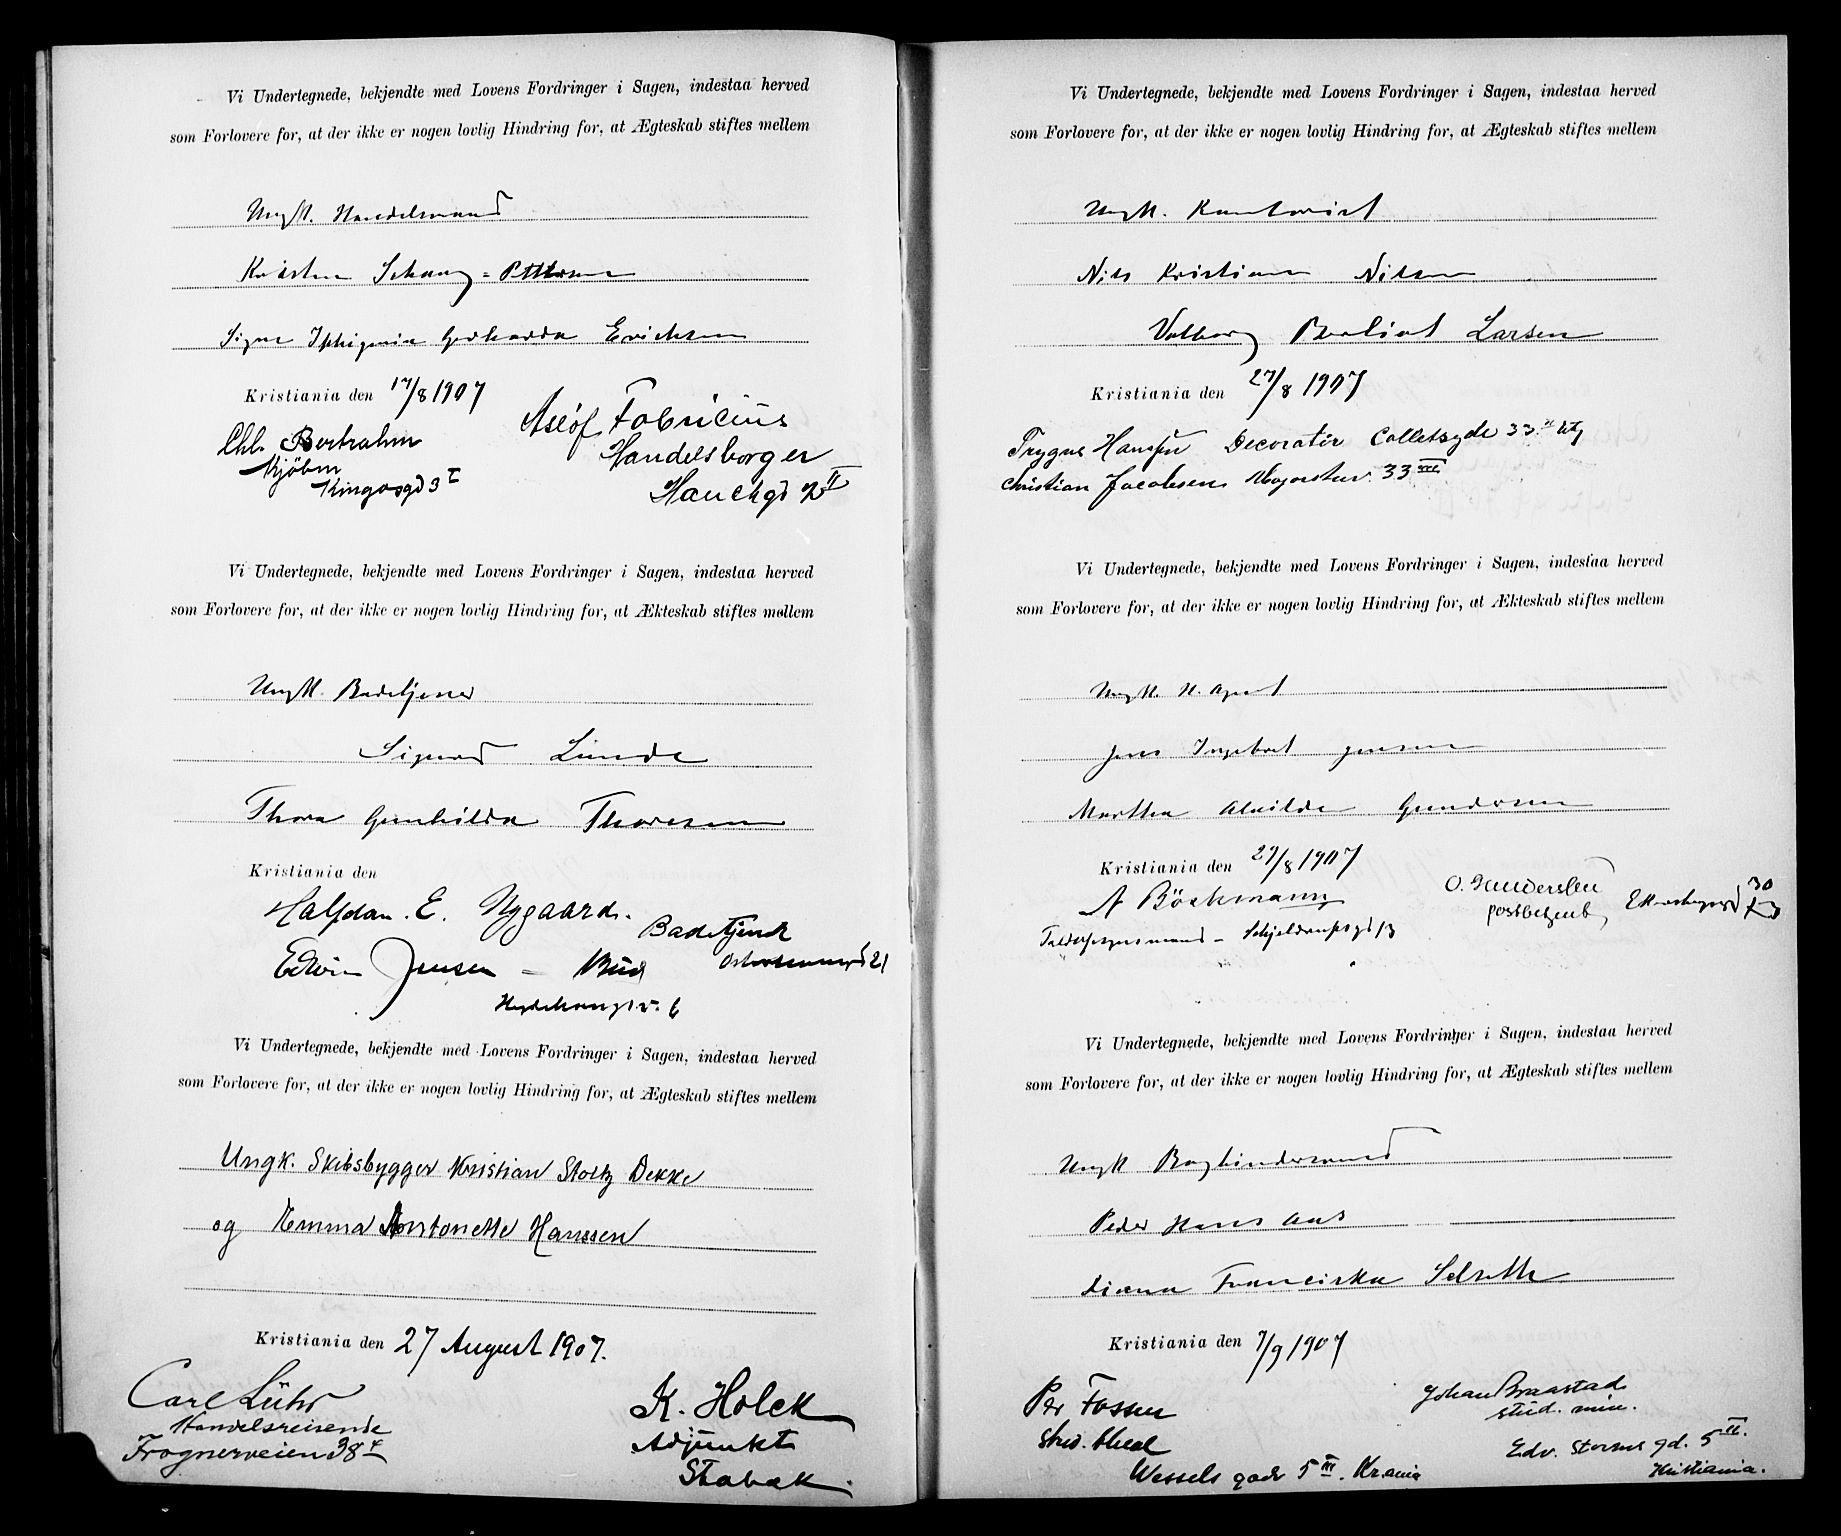 Vi Undertegnede, bekjendte med Lovens Fordringer i Sagen, indestaa herved
som Forlovere for, at der ikke er nogen lovlig Hindring for, at Ægteskab stiftes mellem
Ungk. Handelsmand
Kristen Schaug-Pettersen
Signe Iphigenia Gerharda Erichsen
Kristiania den 17/8 1907
Chr. Bertrahm
Kjöbm
Kingosgd 3 I
Asløf Fabricius
Handelsborger
Hauchgd 2 II
Vi Undertegnede, bekjendte med Lovens Fordringer i Sagen, indestaa herved
som Forlovere for, at der ikke er nogen lovlig Hindring for, at Ækteskab stiftes mellem
Ungk. Badetjener
Sigurd Lunde
Thora Gunhilda Thoresen
Kristiania den
Halfdan. E. Nygaard.
Badetjener
21
Edvin Jensen – Bud
6
Vi Undertegnede, bekjendte med Lovens Fordringer i Sagen, indestaa herved
som Forlovere for, at der ikke er nogen lovlig Hindring for, at Ægteskab stiftes mellem
Ungk. Skibsbygger Kristian Stoltz Dekke
og Emma Antonette Hanssen
Kristiania den 27 August 1907.
Carl Lühr
Handelsreisende
Frognerveien 38
K. Holck
Adjunkt
Stabæk.
Vi Undertegnede, bekjendte med Lovens Fordringer i Sagen, indestaa herved
som Forlovere for, at der ikke er nogen lovlig Hindring for, at Ægteskab stiftes mellem
Ungk. Kontorist
Nils Kristian Nilsen
Valborg Berliot Larsen
Kristiania den 27/8 1907
Trygve Hansen Decoratör Colletsgde 33
Christian Jacobsen Majorstuv. 33 III
Vi Undertegnede, bekjendte med Lovens Fordringer i Sagen, indestaa herved
som Forlovere for, at der ikke er nogen lovlig Hindring for, at Ækteskab stiftes mellem
Ungk. H. Agent
Jens Ingebret Jensen
Martha Alvilde Gundersen
Kristiania den 29/8 1907
A Böckmann
Schjeldrupsgd 13
O. Gundersen
postbetjent
30
Vi Undertegnede, bekjendte med Lovens Fordringer i Sagen, indestaa herved
som Forlovere for, at der ikke er nogen lovlig Hindring for, at Ægteskab stiftes mellem
Ungk Bogbindersvend
Peder Hans Aas
Diana Franciska Selseth
Kristiania den 7/9 1907
Per Fossen
Stud. theol
Wessels gade 5 III. Kr.ania
Johan Braastad
stud. min.
Edv. Storms gd. 5 III.
Kristiania.